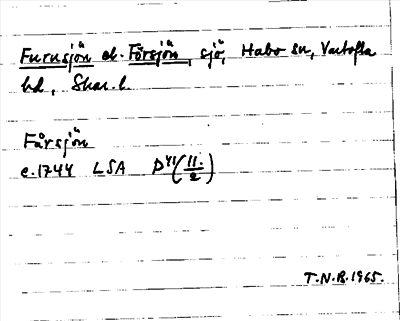 Furusjön el. Försjön, sjö, Habo sn, Vartofta
hd, Skar. l.
Fårsjön
c. 1744 LSA P41 (11:/2)
T.N.B. 1965.